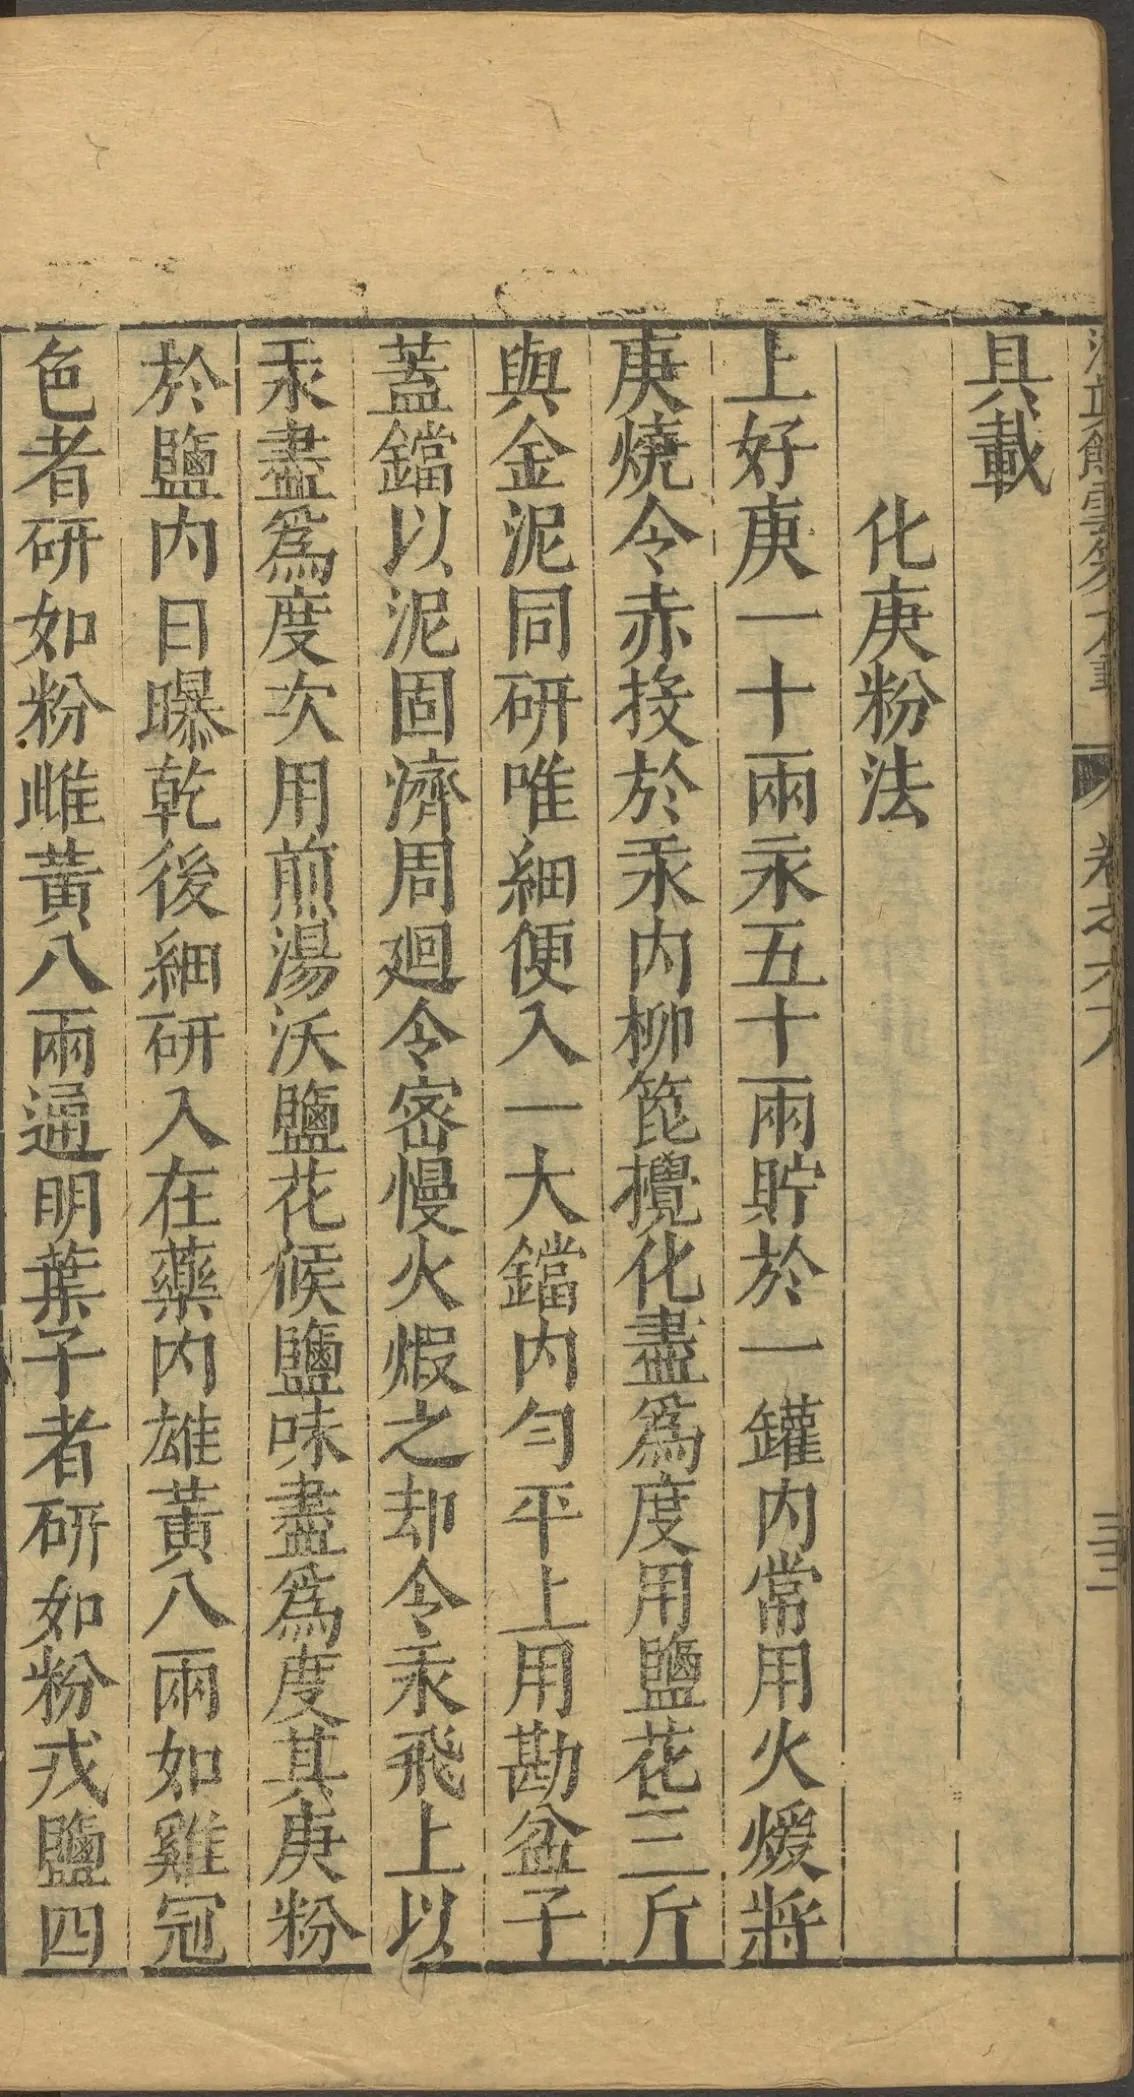 具載
化庚粉法
上好庚一十兩汞五十兩貯於一罐内常用火煖將
庚燒令赤投於汞内柳箆攪化盡爲度用鹽花三斤
與金泥同研唯細便入一大鐺内勻平上用勘盆子
蓋鐺以泥固濟周廻令密慢火煆之却令汞飛上以
汞盡爲度次用煎湯沃鹽花候鹽味盡爲度其庚粉
於鹽内日曝乾後細研入在藥内雄黃八兩如雞冠
色者研如粉雌黃八兩通明葉子者研如粉戎鹽四